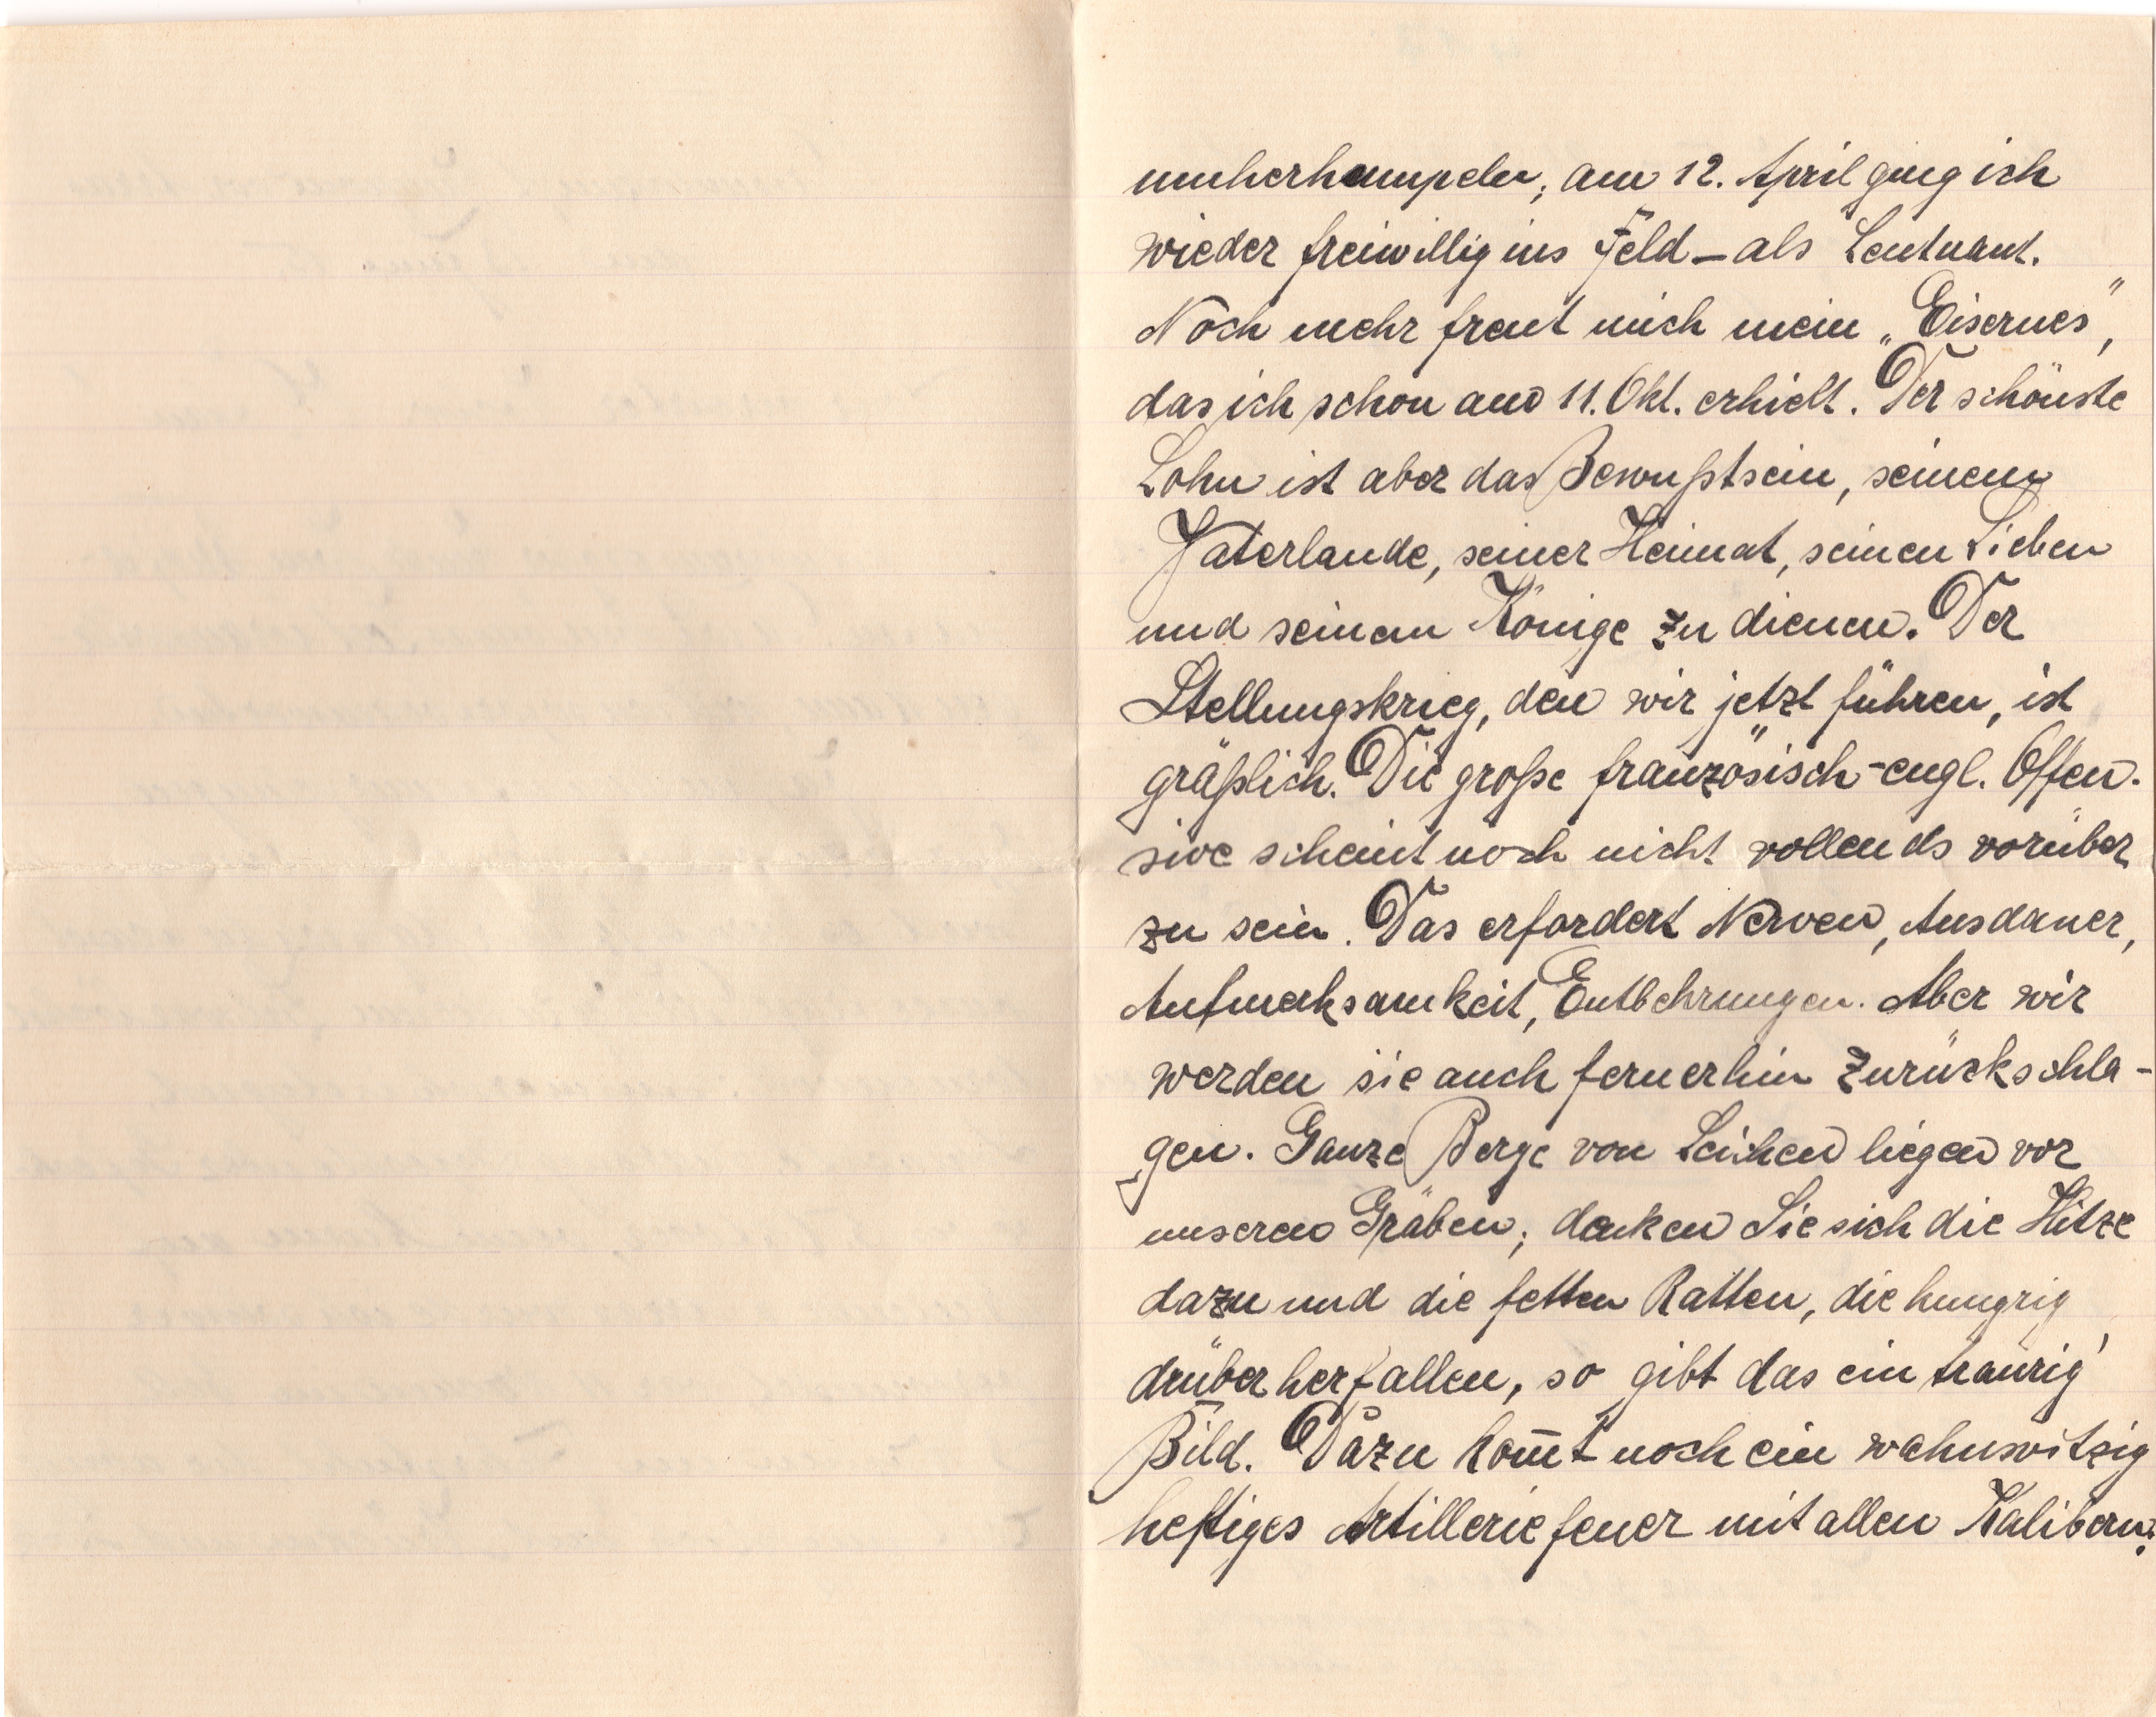 umherhumpeln; am 12. April ging ich
wieder freiwillig ins Feld – als Leutnant.
Noch mehr freut mich mein „Eisernes",
das ich schon am 11. Okt. erhielt. Der schönste
Lohn ist aber das Bewußtsein, seinem
Vaterlande, seiner Heimat, seinen Lieben
und seinem Könige zu dienen. Der
Stellungskrieg, den wir jetzt führen, ist
gräßlich. Die große französisch-engl. Offen-
sive scheint noch nicht vollends vorüber
zu sein. Das erfordert Nerven, Ausdauer,
Aufmerksamkeit, Entbehrungen. Aber wir
werden sie auch fernerhin zurückschla-
gen. Ganze Berge von Leichen liegen vor
unseren Gräben; denken Sie sich die Hitze
dazu und die fetten Ratten, die hungrig
drüber herfallen, so gibt das ein traurig'
Bild. Dazu kom̅t noch ein wahnwitzig
heftiges Artilleriefeuer mit allen Kalibern.